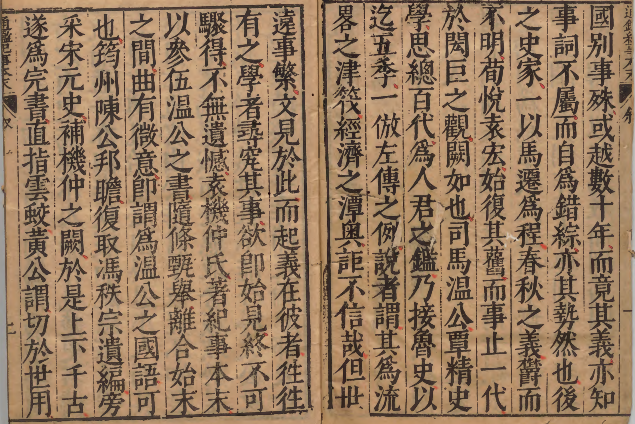 國別事殊或越數十年而竟其義亦知
事詞不屬而自爲錯綜亦其勢然也後
之史家一以馬遷爲程春秋之義欝而
不明荀悅袁宏始復其舊而事止一代
於閎巨之觀闕如也司馬温公覃精史
學思總百代爲人君之鑑乃接魯史以
迄五季一倣左傳之例說者謂其爲流
畧之津筏經濟之潭奥詎不信哉但世
遠事繁文見於此而起義在彼者徃徃
有之學者尋究其事欲即始見終不可
驟得不無遺憾袁機仲氏著紀事本末
以參伍温公之書隨條甄舉離合始末
之間曲有微意即謂爲温公之國語可
也筠州陳公邦瞻復取馮秩宗遺編旁
采宋元史補機仲之闕於是上下千古
遂爲完書直指雲蛟黄公謂切於世用
通鑑紀事本末